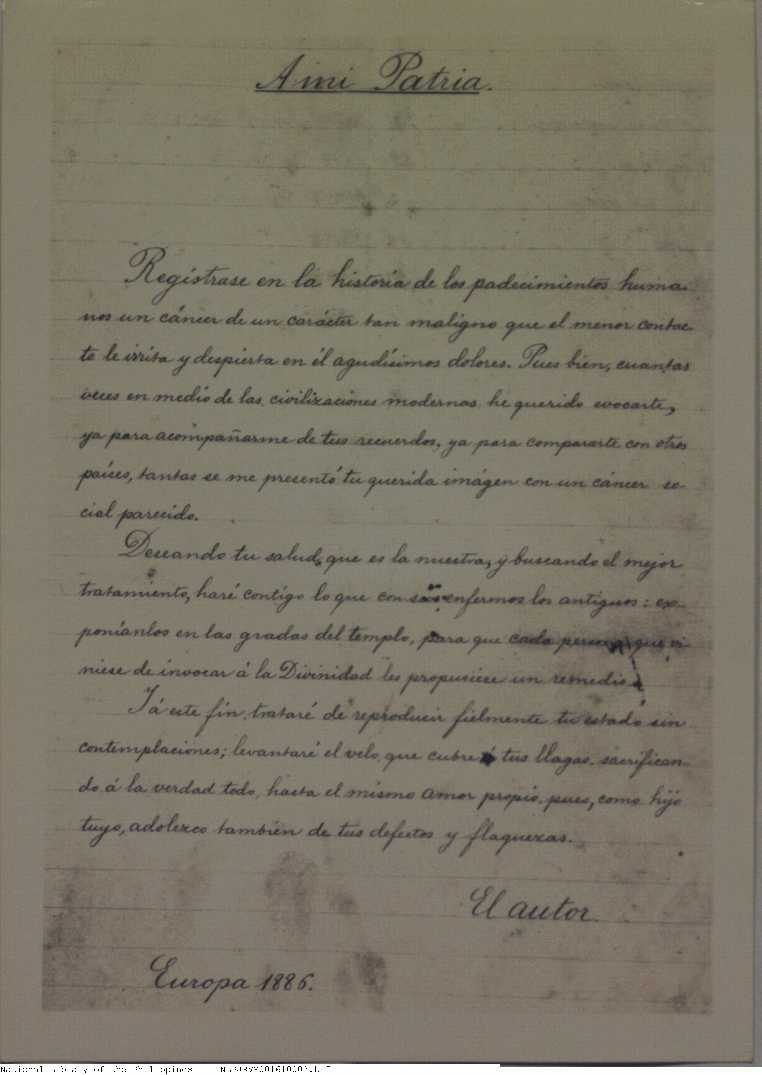 A mi Patria.
Regístrase en la historia de los padecimientos huma-
nos un cáncer de un carácter tan maligno que el menor contac-
to le irrita y despierta en él agudísimos dolores. Pues bien, cuantas
veces en medio de las civilizaciones modernas he querido evocarte,
ya para acompañarme de tus recuerdos, ya para compararte con otros
países, tantas se me presentó tu querida imágen con un cáncer so-
cial parecido.
Deseando tu salud, que es la nuestra, y buscando el mejor
tratamiento, haré contigo lo que con sus enfermos los antiguos: ex-
poníanlos en las gradas del templo, para que cada persona que vi-
niese de invocar á la Divinidad les propusiese un remedio.
Y á este fin, trataré de reproducir fielmente tu estado sin
contemplaciones; levantaré el velo que cubre á tus llagas, sacrifican-
do á la verdad todo, hasta el mismo amor propio, pues, como hijo
tuyo, adolezco también de tus defectos y flaquezas.
El autor.
Europa 1886.
National Library of the Philippines